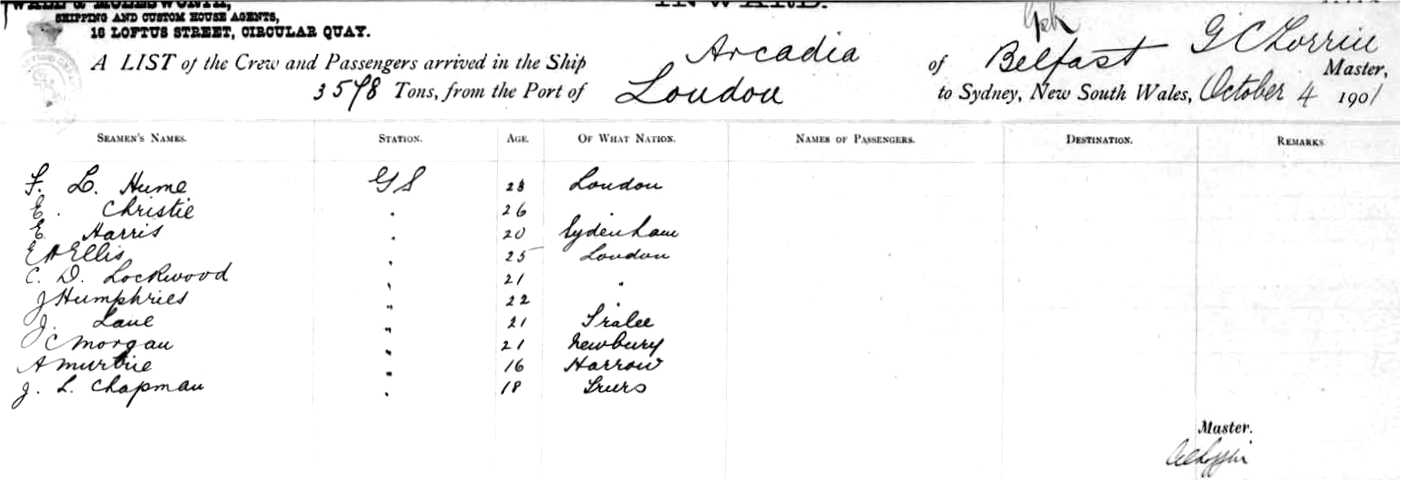 WALL & MOLESWORTH,
SHIPPING AND CUSTOM HOUSE AGENTS,
16 LOFTUS STREET, CIRCULAR QUAY.
INWARD.
A LIST of the Crew and Passengers arrived in the Ship Arcadia of Belfast G C Master,
3578 Tons, from the Port of London to Sydney, New South Wales, October 4 1901
SEAMEN'S NAMES. STATION. AGE. OF WHAT NATION. NAMES OF PASSENGERS. DESTINATION. REMARKS
F. L. Hume G S 28 London
E. Christie " 26
E. Harris " 20 Sydenham
E A Ellis " 25 London
C. D. Lockwood " 21 "
J Humphries " 22
J. Lane " 21 Tralee
C Morgan " 21 Newbury
A Murtrie " 16 Harrow
J. L. Chapman " 18 Truro
Master.